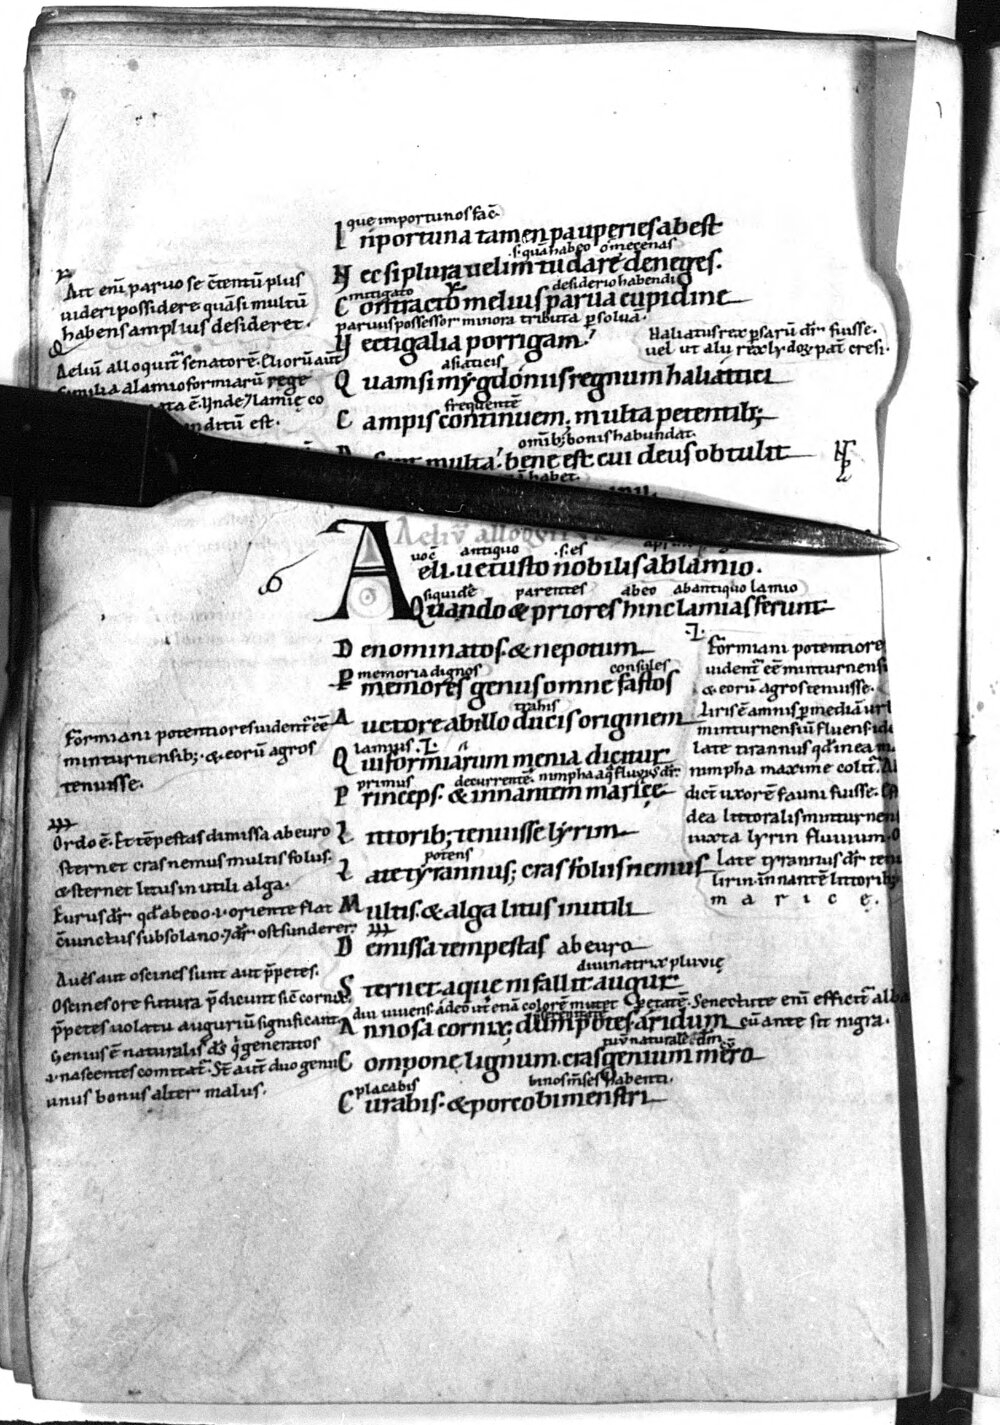 que importunos fac̄
Inportuna tamen pauperies abest
.s. quā habeo o mecenas
Nec si plura uelim tu dare deneges.
mitigato desiderio habendi
Contracto melius parua cupidine
paruus possessor minora tributa p̱soluā.
Vectigalia porrigam.
asiaticis
Quam si mẏgdoniis regnum haliattici
frequentē
Campis continuem; multa petentib;
omīb; bonis habundat.
multa. bene est cui deus obtulit
habet.
Ait eni̅ paruo se c̄tentū plus
uideri possidere quā si multū
habens amplius desideret.
Aeliū alloquit̄ senatorē.
familia a lamio formiarū rege
ē. Vnde 7 lamię co
nditū est.
Haliattus rex p̱sarū dr̄ fuisse.
uel ut alii rex lẏdoꝝ pat̄ cresi.
Aeliv̄ alloq
uoc̄ antiquo .s. es
Aeli. uetusto nobilis ab lamio.
siquidē parentes ab eo ab antiquo lamio
Quando & priores hinc lamias ferunt
Denominatos. & nepotum
memoria dignos consules
P̱ memores genus omne fastos
trahis
Auctore ab illo ducis originem
lamius
Qui formiarum menia dicitur
primus decurrentē. nimpha aq̄ fluuius dr̄
Princeps. & innantem maricę
Littorib; tenuisse lẏrim
potens
Late tẏrannus; cras foliis nemus
Multis. & alga litus inutili
Demissa tempestas ab euro
diuinatrix pluuię
Sternet. aquę ni fallit augur
diu uiuens. adeo ut etiā colorē mutet p̱ etatē. Senectute eni̅ efficit̄ alba
Annosa cornix; dum potes aridum
cū ante sit nigra.
Compone lignum. cras genium mero
placabis bimos m̄ses habenti.
Curabis. & porco bimenstri
Formiani potentiores uident̄ eē
minturnensib; & eorū agros
tenuisse.
Ordo ē. Et tēpestas dimissa ab euro
sternet cras nemus multis foliis.
& sternet litus inutili alga.
Eurus dr̄ qd̄ ab eoo .i. oriente flat
c̄iunctus subsolano. 7 dr̄ ostsunderer
Aues aut oscines sunt aut p̄petes.
Oscines ore futura p̄dicunt sic̄ cornix.
p̄petes uolatu auguriū significant
Genius ē naturalis ds̄ q̇ generatos
.i. nascentes comitat̄. St̄ aut̄ duo genii
unus bonus alter malus.
Formiani potentiore
uident̄ eē minturnensi
& eorū agros tenuisse.
Liris ē amnis p̱ mediā ur
minturnensiū fluens
late tirannus qd̄ in ea
nimpha maxime colit̄.
dicit̄ uxorē fauni fuisse.
dea littoralis minturnen
iuxta lẏrin fluuium.
Late tẏrannus dr̄ ten
lirin. innantē littorib;
maricę.